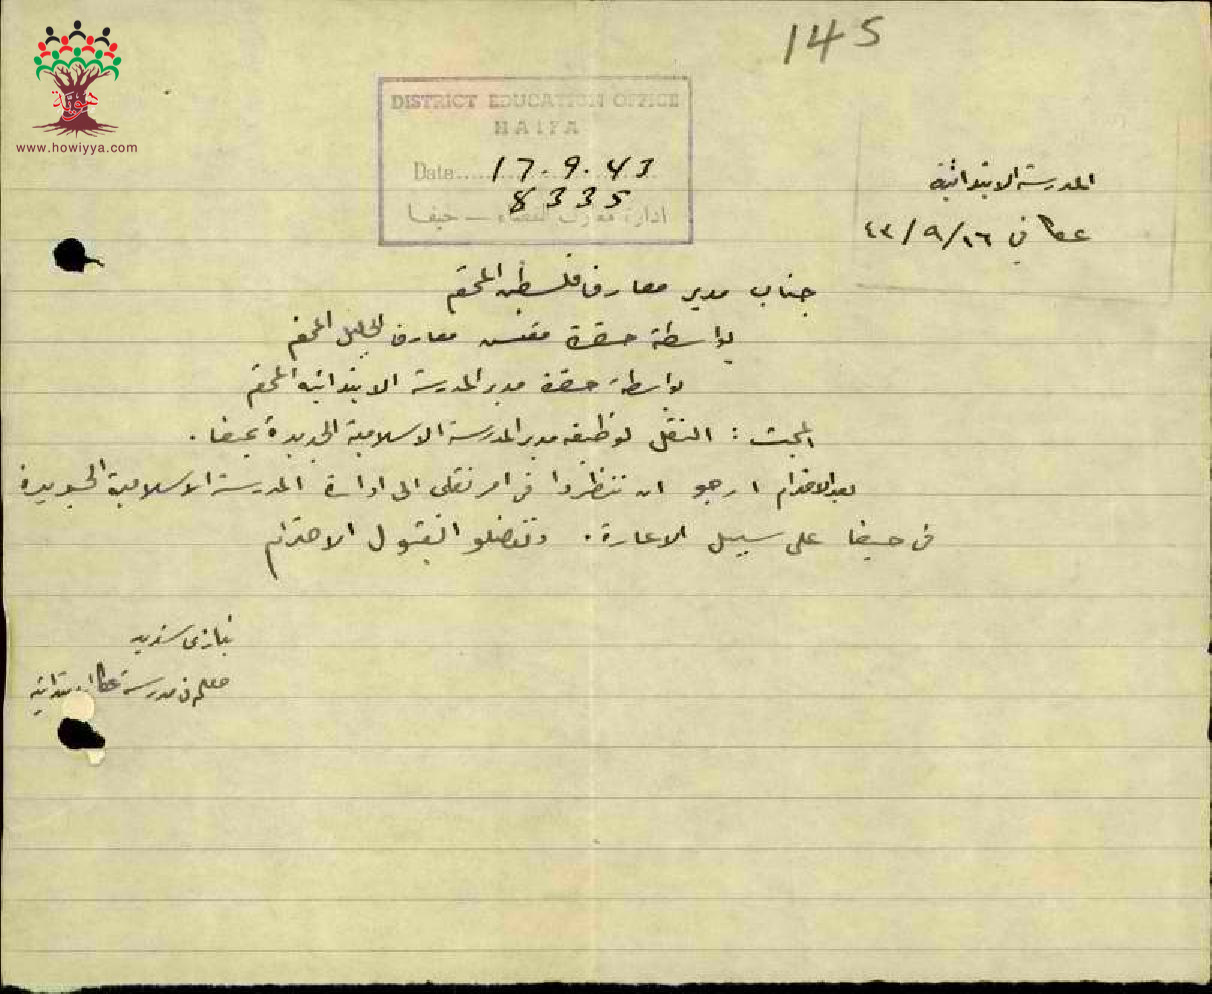 145
هوية
www.howiyya.com
DISTRICT EDUCATION OFFICE
HAIFA
Date..... 17.9.43
8335
ادارة معارف القضاء – حيفا
المدرسة الابتدائية
عكا في ١٦/٩/٤٣
جناب مدير معارف فلسطين المحترم
بواسطة حضرة مفتش معارف الجليل المحترم
بواسطة حضرة مدير المدرسة الابتدائية المحترم
المبحث : النقل لوظيفة مدير المدرسة الاسلامية الجديدة بحيفا .
بعد الاحترام ارجو ان تنظروا في امر نقلي الى ادارة المدرسة الاسلامية الجديدة
في حيفا على سبيل الاعارة . وتفضلو بقبول الاحترام
نيازي
معلم في مدرسة عكا الابتدائية